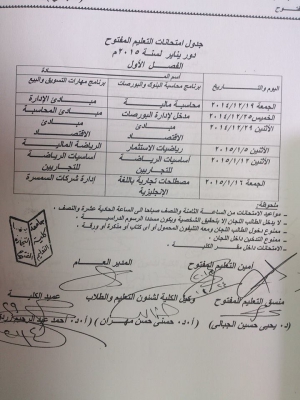 جدول امتحانات التعليم المفتوح
دور يناير لسنة ٢٠١٥م
الفصل الأول
اليوم والتاريخ
المادة
برنامج محاسبة البنوك والبورصات
برنامج مهارات التسويق والبيع
الجمعة ٢٠١٤/١٢/١٩
محاسبة مالية
مبادئ الإدارة
الخميس ٢٠١٤/١٢/٢٥
مدخل لإدارة البورصات
مبادئ المحاسبة
الأثنين ٢٠١٤/١٢/٢٩
مبادئ الاقتصاد
مبادئ الاقتصاد
الأثنين ٢٠١٥/١/٥
رياضيات الاستثمار
الرياضة المالية
الأثنين ٢٠١٥/١/١٢
أساسيات الرياضة للتجاريين
أساسيات الرياضة للتجاريين
الجمعة ٢٠١٥/١/١٦
مصطلحات تجارية باللغة الإنجليزية
إدارة شركات السمسرة
ملحوظة
- مواعيد الامتحانات من الساعة الثامنة والنصف صباحا الى الساعة الحادية عشرة والنصف .
- لا يدخل الطالب اللجان إلا بتحقيق الشخصية ويكون مسددا الرسوم الدراسية .
- ممنوع دخول الطالب اللجان ومعه التليفون المحمول أو أى كتاب أو مذكرة أو ورقة .
- ممنوع التدخين داخل اللجان .
- الامتحانات داخل مقر الكلية .
أمين التعليم المفتوح
المدير العام
منسق التعليم المفتوح
وكيل الكلية لشئون التعليم والطلاب
عميد الكلية
(د. يحيى حسين الجبالى)
(أ.د. حسنى حسن مهران)
(أ.د. أحمد عبد الرحيم